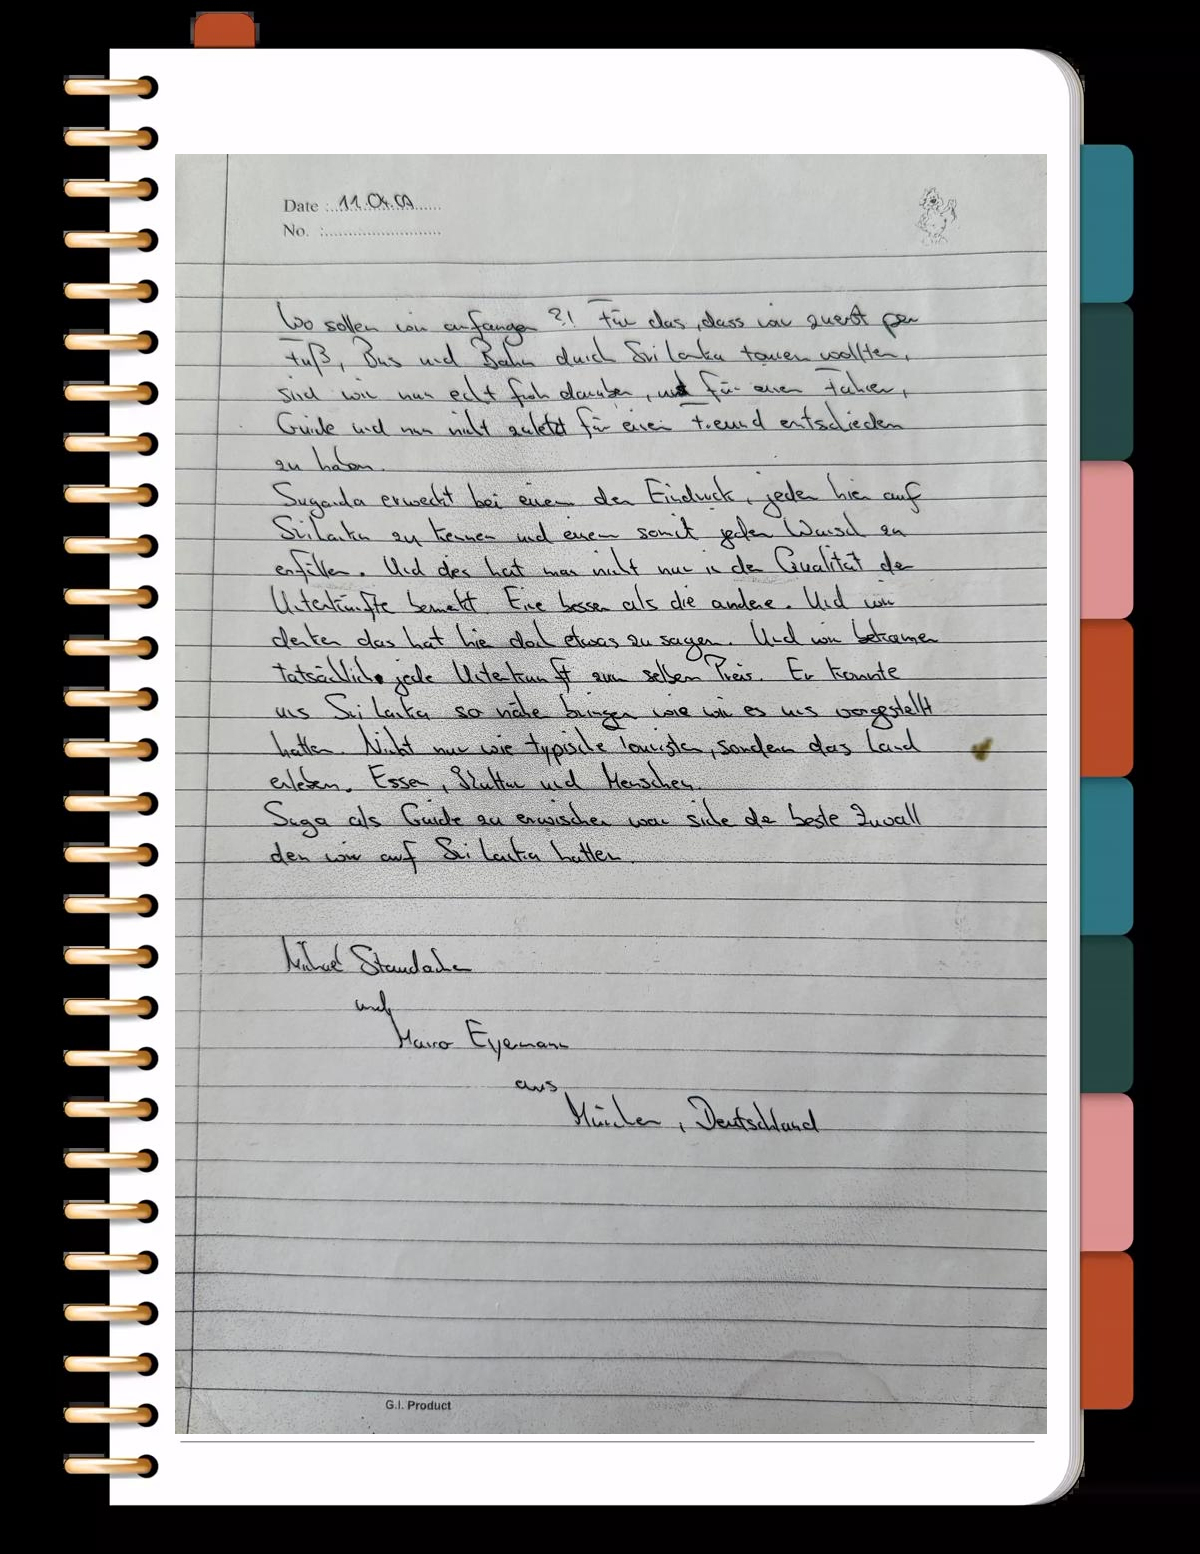 Date : 11.04.09
No. :
Wo sollen wir anfangen ?! Für das, dass wir zuerst per
Fuß, Bus und Bahn durch Sri Lanka touren wollten,
sind wir nun echt froh darüber, uns für einen Fahrer,
Guide und nun nicht zuletzt für einen Freund entschieden
zu haben.
Suganda erweckt bei einem den Eindruck, jeden hier auf
Sri Lanka zu kennen und einem somit jeden Wunsch zu
erfüllen. Und dies hat man nicht nur in der Qualität der
Unterkünfte bemerkt. Eine besser als die andere. Und wir
denken das hat hier doch etwas zu sagen. Und wir bekamen
tatsächlich jede Unterkunft zum selben Preis. Er konnte
uns Sri Lanka so nähe bringen wie wir es uns vorgestellt
hatten. Nicht nur wie typische Touristen, sondern das Land
erleben. Essen, Kultur und Menschen.
Suga als Guide zu erwischen war sicher der beste Zuvall
den wir auf Sri Lanka hatten.
Michael Staudacher
und
Marco Eyemann
aus
München, Deutschland
G.I. Product